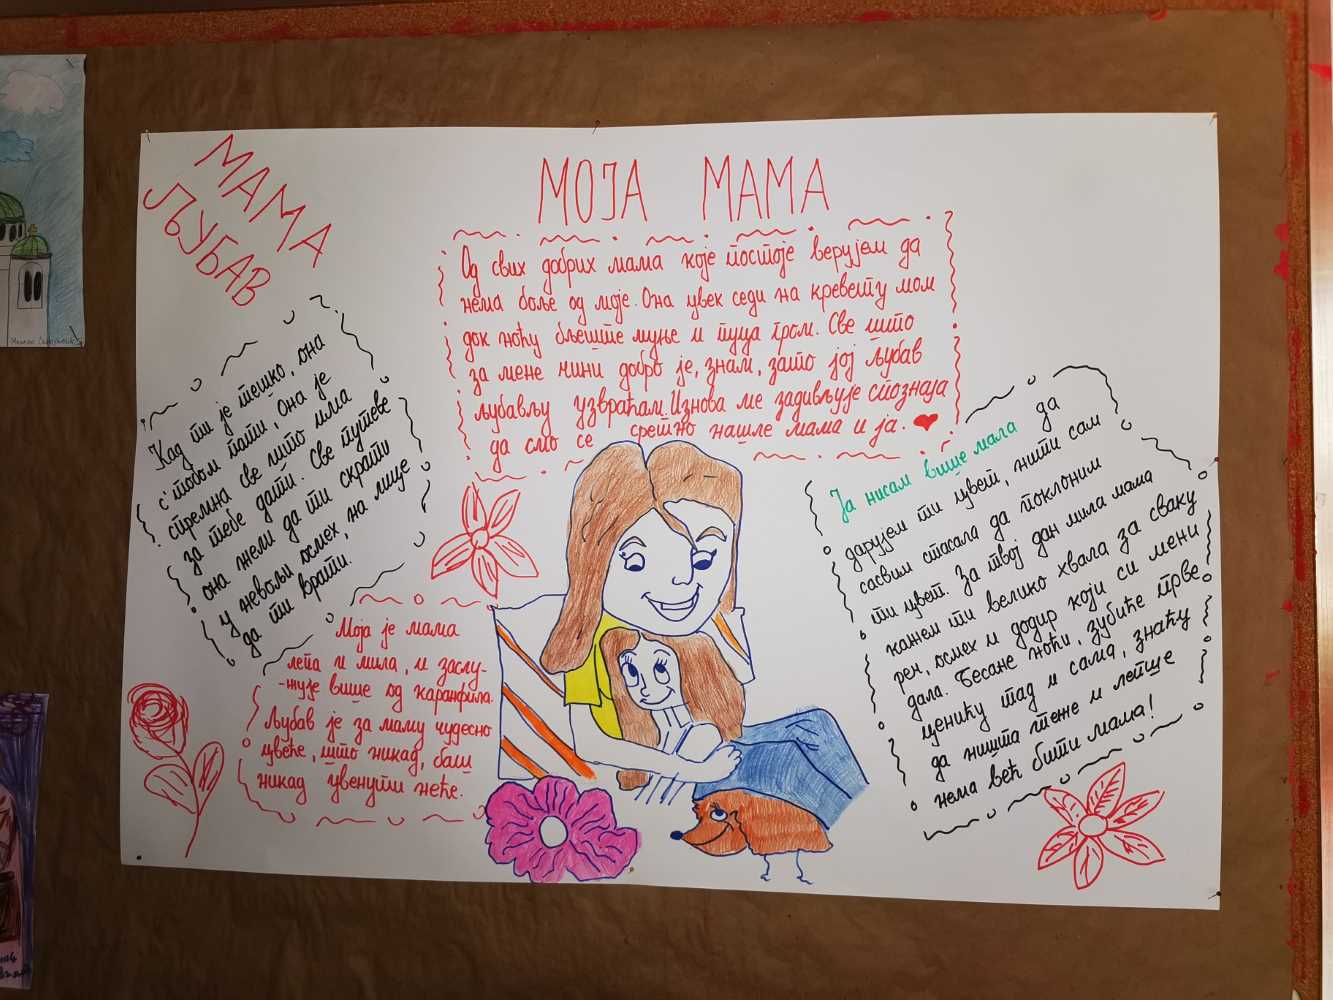 МАМА
ЉУБАВ
МОЈА МАМА
Од свих добрих мама које постоје верујем да
нема боље од моје. Она увек седи на кревету мом
док ноћу бљеште муње и пуца гром. Све што
за мене чини добро је, знам, зато јој љубав
љубављу узвраћам. Изнова ме задивљује спознаја
да смо се срећно нашле мама и ја.
Кад ти је тешко, она
с' тобом пати, она је
спремна све што има
за тебе дати. Све путеве
она жели да ти скрати
у невољи осмех, на лице
да ти врати.
Моја је мама
лепа и мила, и заслу-
-жује више од каранфила.
Љубав је за маму чудесно
цвеће, што никад, баш
никад увенути неће.
Ја нисам више мала да
дарујем ти цвет, нити сам
сасвим стасала да поклоним
ти цвет. За твој дан мила мама
кажем ти велико хвала за сваку
реч, осмех и додир који си мени
дала. Бесане ноћи, зубиће прве
ценићу тад и сама, знаћу
да ништа теже и лепше
нема већ бити мама!